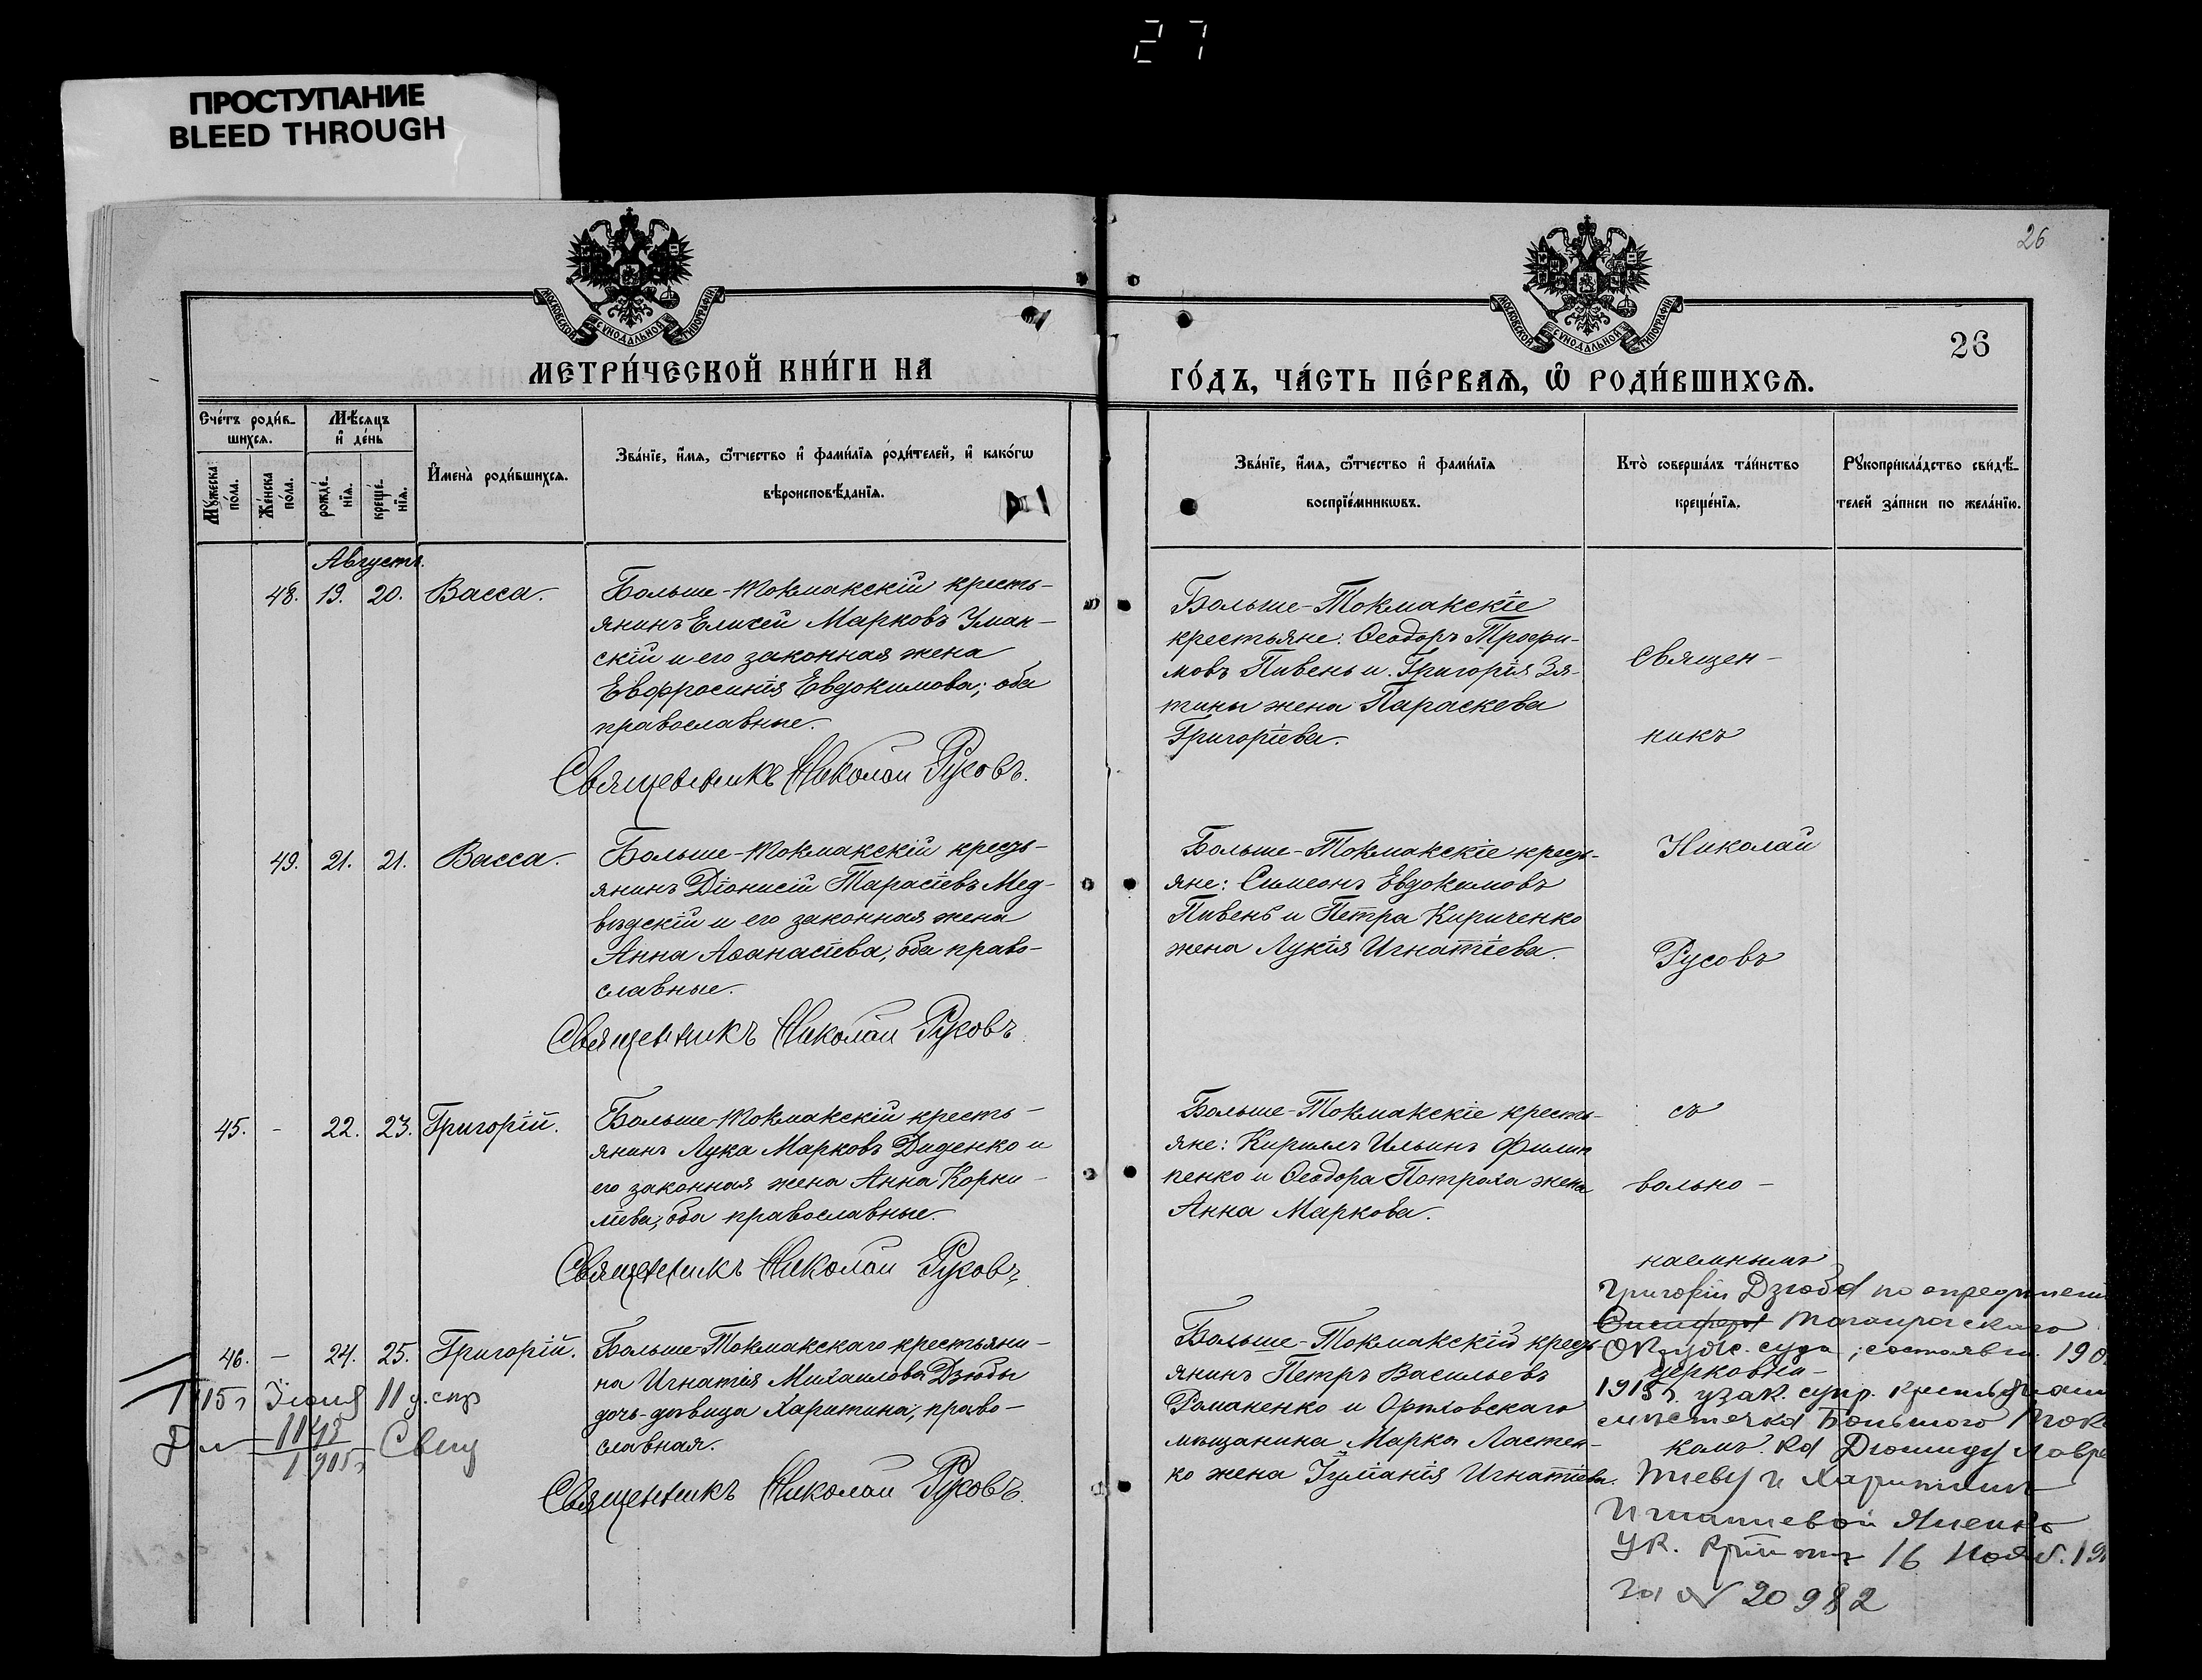 27
ПРОСТУПАНИЕ
BLEED THROUGH
26
МОСКОВСКОЙ СѴНОДАЛЬНОЙ ТИПОГРАФІИ
МОСКОВСКОЙ СѴНОДАЛЬНОЙ ТИПОГРАФІИ
26
МЕТРИ́ЧЕСКОЙ КНИ́ГИ НА
ГО́ДЪ, ЧА́СТЬ ПЕ́РВАѦ, Ѡ҆ РОДИ́ВШИХСѦ.
Сче́тъ роди́в-
шихсѧ.
Мѣ́сѧцъ
и҆ де́нь
Мꙋ́жеска
по́ла.
Же́нска
по́ла.
рожде́-
нїѧ.
креще́-
нїѧ.
И҆мена̀ роди́вшихсѧ.
Зва́нїе, и҆́мѧ, ѻ҆́тчество и҆ фами́лїѧ роди́телей, и҆ како́гѡ
вѣроисповѣ́данїѧ.
Зва́нїе, и҆́мѧ, ѻ҆́тчество и҆ фами́лїѧ
воспрїе́мникѡвъ.
Кто̀ соверша́лъ та́инство
креще́нїѧ.
Рꙋкоприкла́дство свидѣ́-
телей за́писи по жела́нїю.
Августъ.
48. 19. 20. Васса.
Больше-Токмакскій кресть-
янинъ Елисей Марковъ Уман-
скій и его законная жена
Евфросинія Евдокимова; оба
православные.
Священникъ Николай Русовъ.
Больше-Токмакскіе
крестьяне: Ѳеодоръ Трофи-
мовъ Пивень и Григорія Зя-
тины жена Параскева
Григоріева.
Священ-
никъ
49. 21. 21. Васса.
Больше-Токмакскій кресть-
янинъ Діонисій Тарасіевъ Мед-
вѣдскій и его законная жена
Анна Аѳанасіева, оба право-
славные.
Священникъ Николай Русовъ.
Больше-Токмакскіе кресть-
яне: Симеонъ Евдокимовъ
Пивень и Петра Кириченко
жена Лукія Игнатіева.
Николай
Русовъ
45. - 22. 23. Григорій.
Больше-Токмакскій кресть-
янинъ Лука Марковъ Диденко и
его законная жена Анна Корни-
ліева; оба православные.
Священникъ Николай Русовъ
Больше-Токмакскіе кресть-
яне: Кириллъ Ильинъ Филип
пенко и Ѳеодора Потроля жена
Анна Маркова.
съ
вольно-
наемнымъ
46. - 24. 25. Григорій.
Больше-Токмакскаго крестьяни-
на Игнатія Михаилова Дзюбы
дочь-дѣвица Харитина, право-
славная.
Священникъ Николай Русовъ.
15 г Іюня 11 д.
1905 г
Больше-Токмакскій кресть-
янинъ Петръ Васильевъ
Романенко и Орѣховскаго
мѣщанина Марка Ластен-
ко жена Іуліанія Игнатіева.
Григорій Дзюба по опредѣлені
Таганрогскаго
Окруж. суда, состоявш. 190
церковни-
узак. супр.
мѣстечка Большого Ток
комъ.
и Харитинѣ
Игнатіевой Яценко
16 Нояб. 19
за № 20982